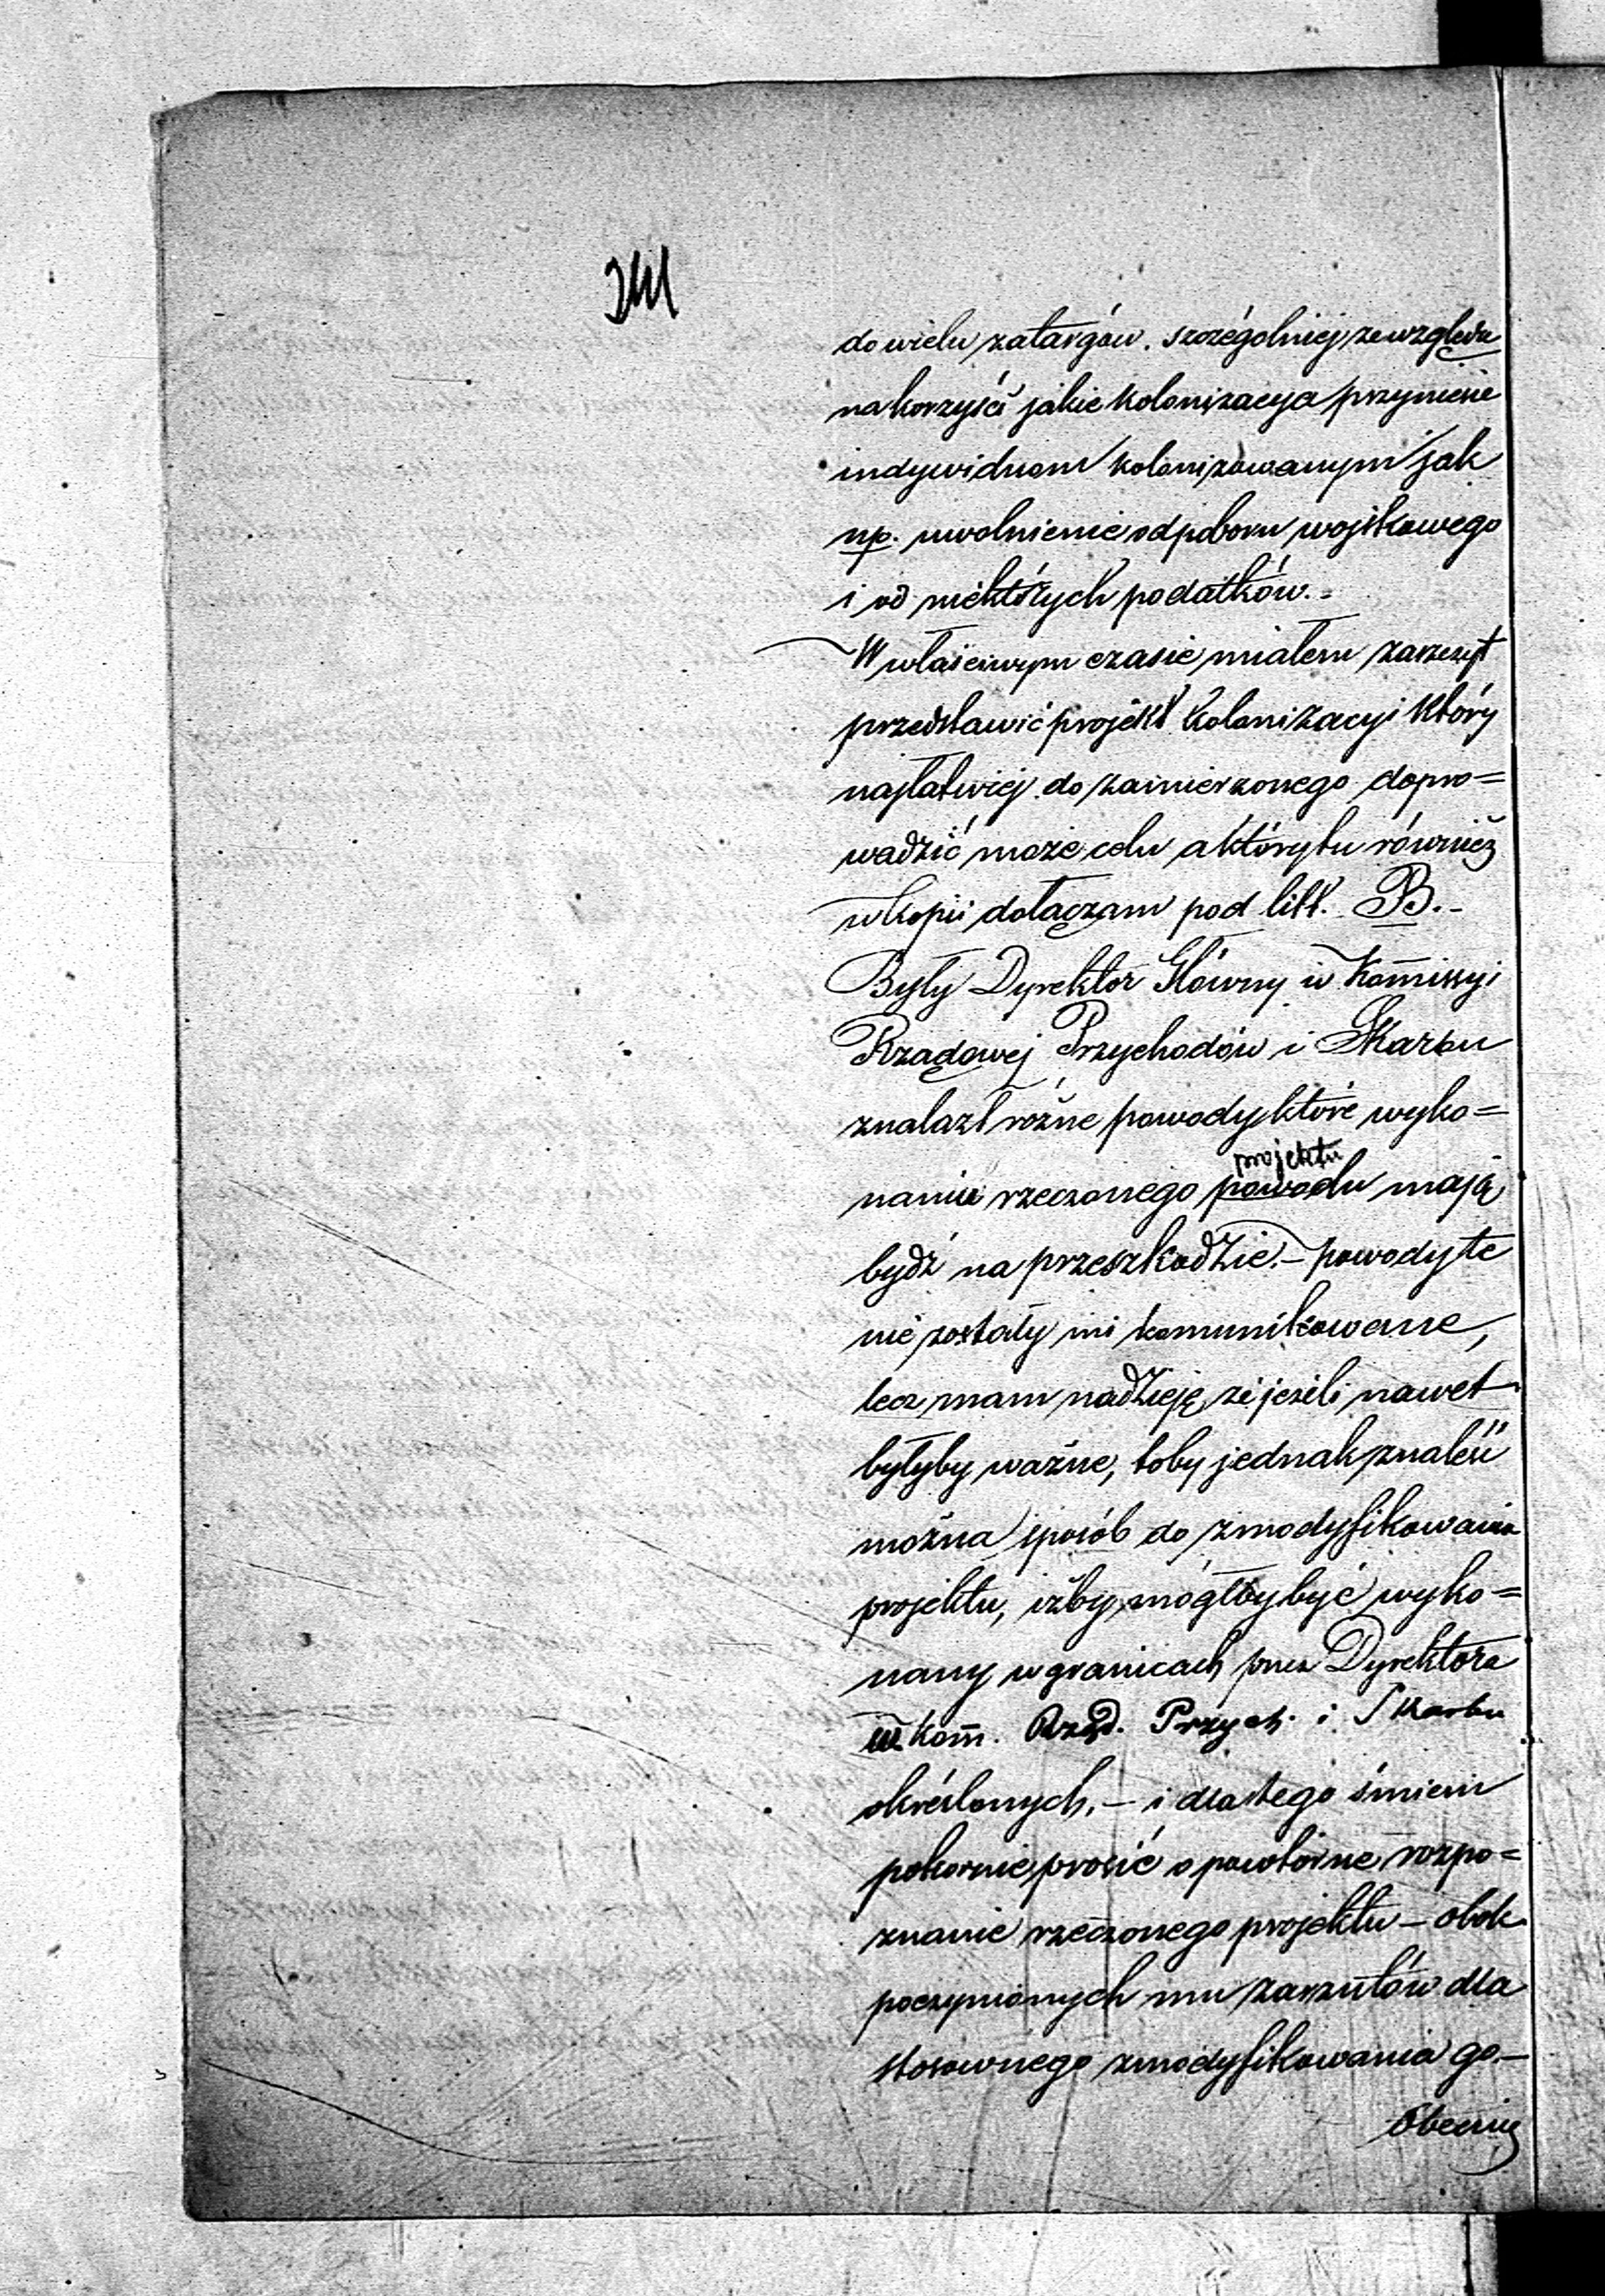 do wielu zatargów. szczególniej ze względu
na korzyści jakie kolonizacya przyniesie
indywiduom kolonizowanym jak
np. uwolnienie od poboru wojskowego
i od niektórych podatków.-
W właściwym czasie miałem zaszczyt
przedstawić projekt kolonizacyi który
najłatwiej do zamierzonego dopro=
wadzić może celu a który tu również
w kopii dołączam pod litt. B.-
Były Dyrektor Główny w Komissyi
Rządowej Przychodów i Skarbu
znalazł różne powody które wyko=
naniu rzeczonego powodu mają
projektu
bydź na przeszkodzie.- powody te
nie zostały mi komunikowane,
lecz mam nadzieję, że jeżeli nawet
byłyby ważne, toby jednak znaleść
można sposób do zmodyfikowania
projektu, iżby mógłby być wyko=
nany w granicach przez Dyrektora
w Kom. Rząd. Przych. i Skarbu
określonych, - i dla tego śmiem
pokornie prosić o powtórne rozpo=
znanie rzeczonego projektu - obok
poczynionych mu zarzutów dla
stosownego zmodyfikowania go.-
Obecnie